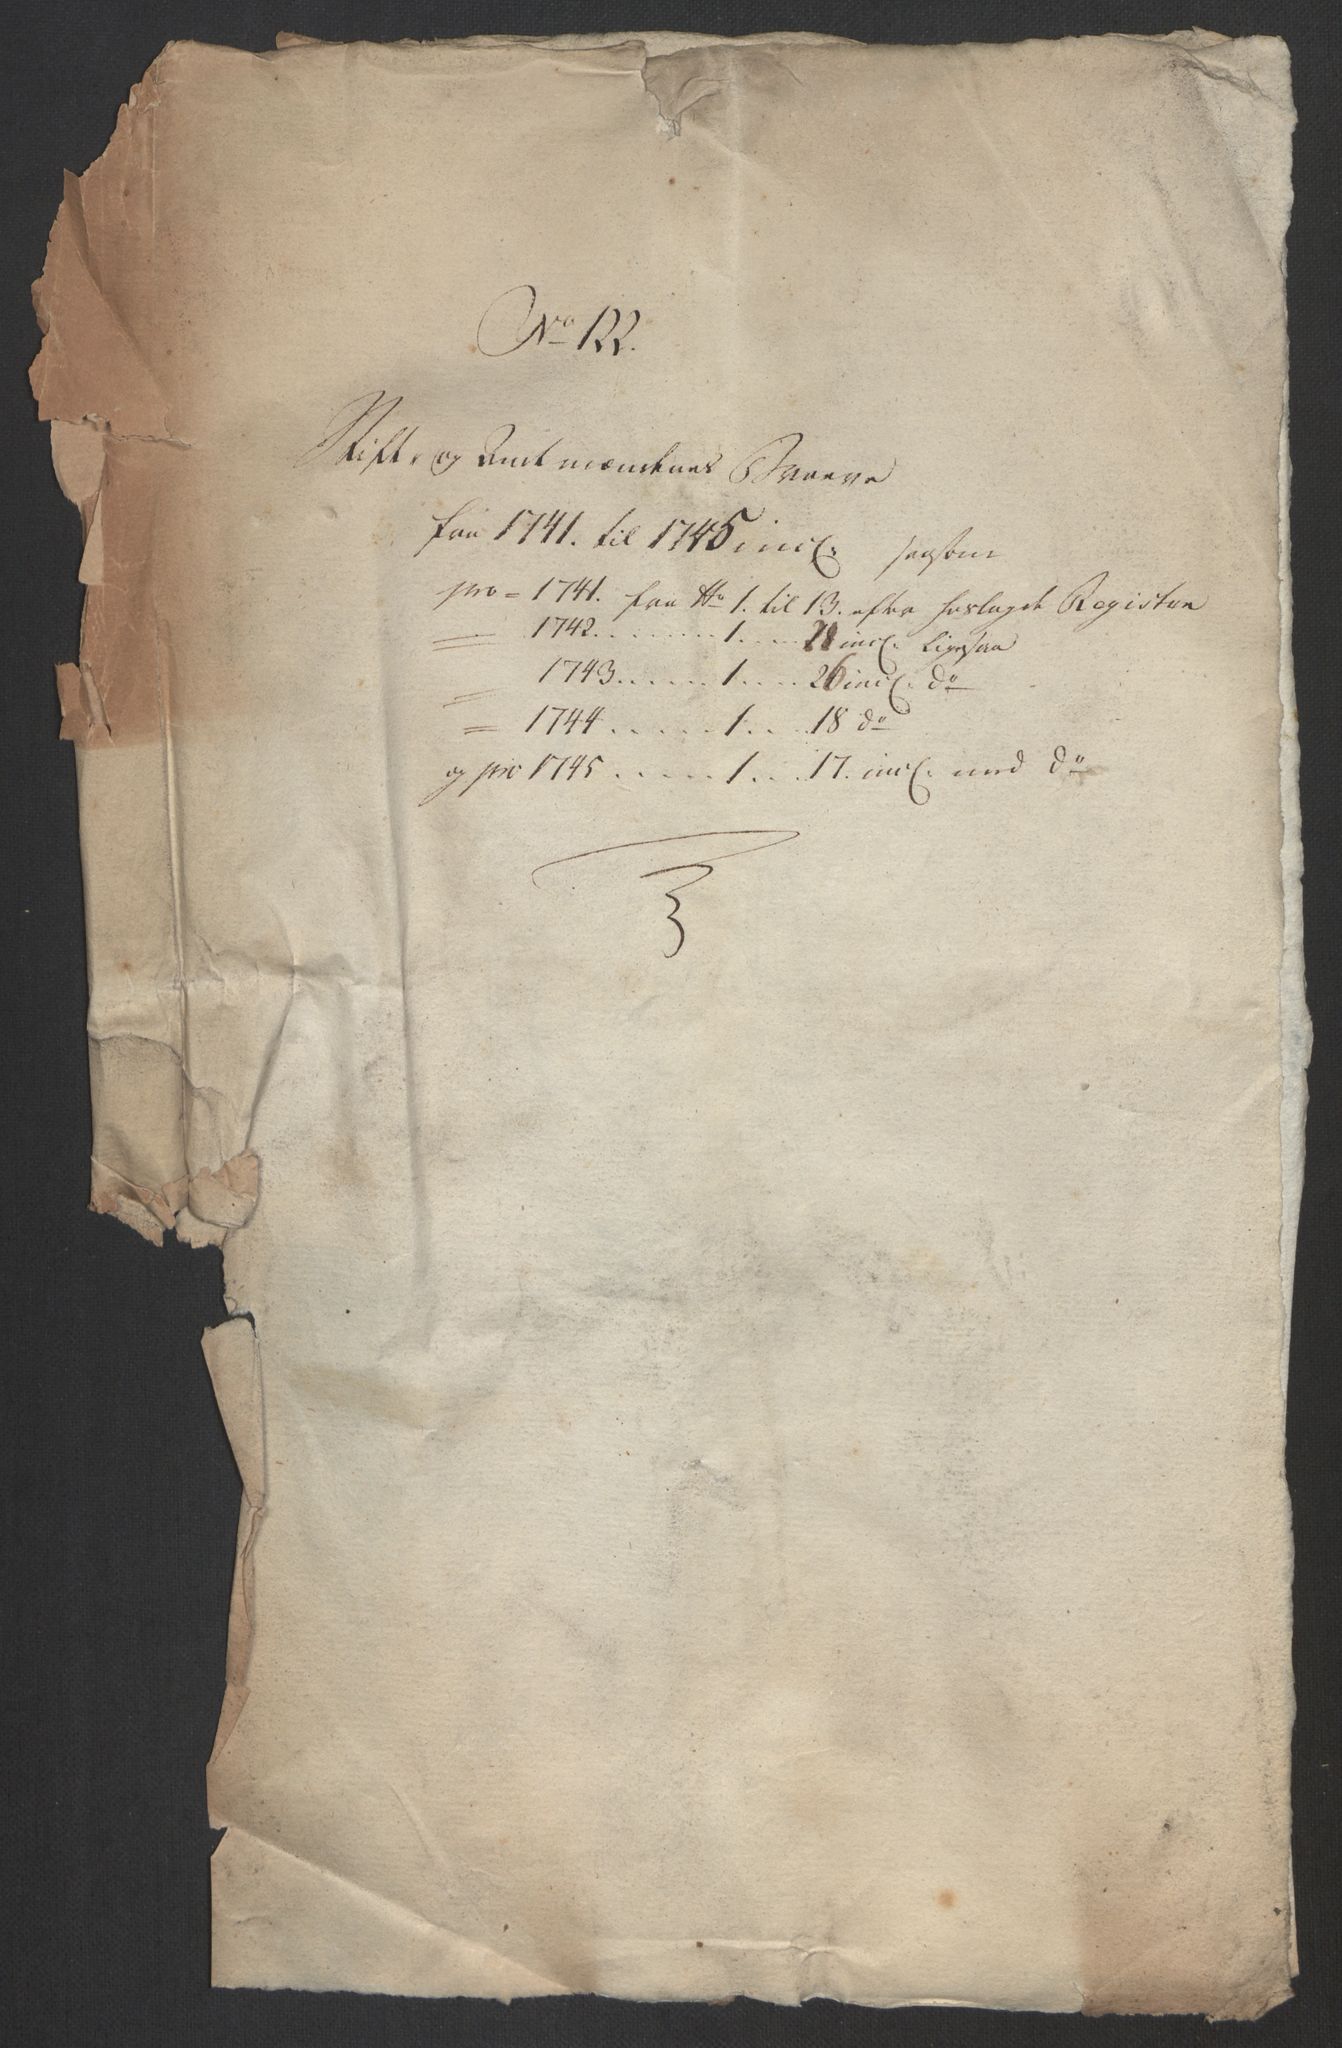 No 122.
Stift- og Amtmændenes Breve
fra 1741. til 1745 incl. saasom
pro = 1741. fra No 1. til 13. efter hoslagde Register
= 1742 . . . . . . . 1 . . . . incl. ligesaa
= 1743 . . . . . 1 . . . . 26 incl. do
= 1744 . . . . . 1 . . . 18 do
og pro 1745 . . . . . 1 . . . 17. incl. med do